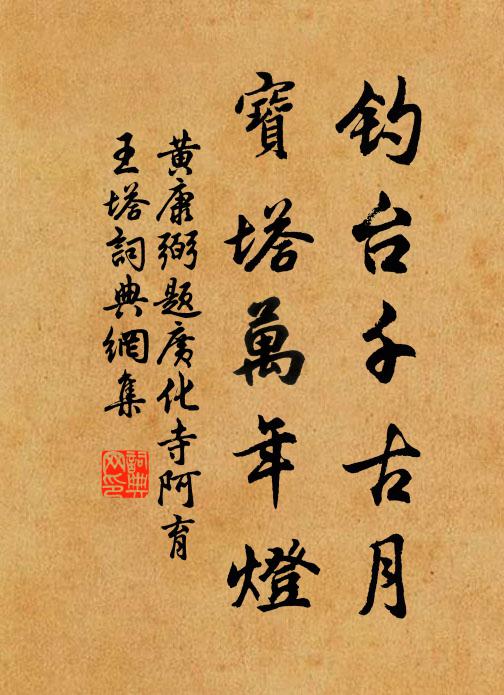 钓台千古月
寶塔萬年燈
黄康弼题廣化寺阿育
王塔詞典網集
詞典网印